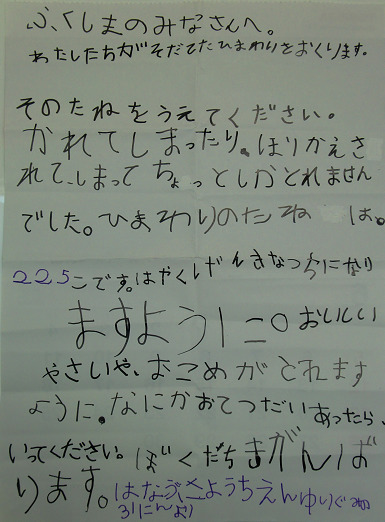 ふくしまのみなさんへ。
わたしたちがそだてたひまわりをおくります。
そのたねをうえてください。
かれてしまったり、ほりかえさ
れて、しまってちょっとしかとれません
でした。ひまわりのたね は。
225こです。はやくしげんきなつちになり
ますように。おいしい
やさいや、おこめがとれます
ように。なにかおてつだいあったら、
いってください。ぼくたちもがんば
ります。はなぶさようちえんゆりぐみ
31にんより